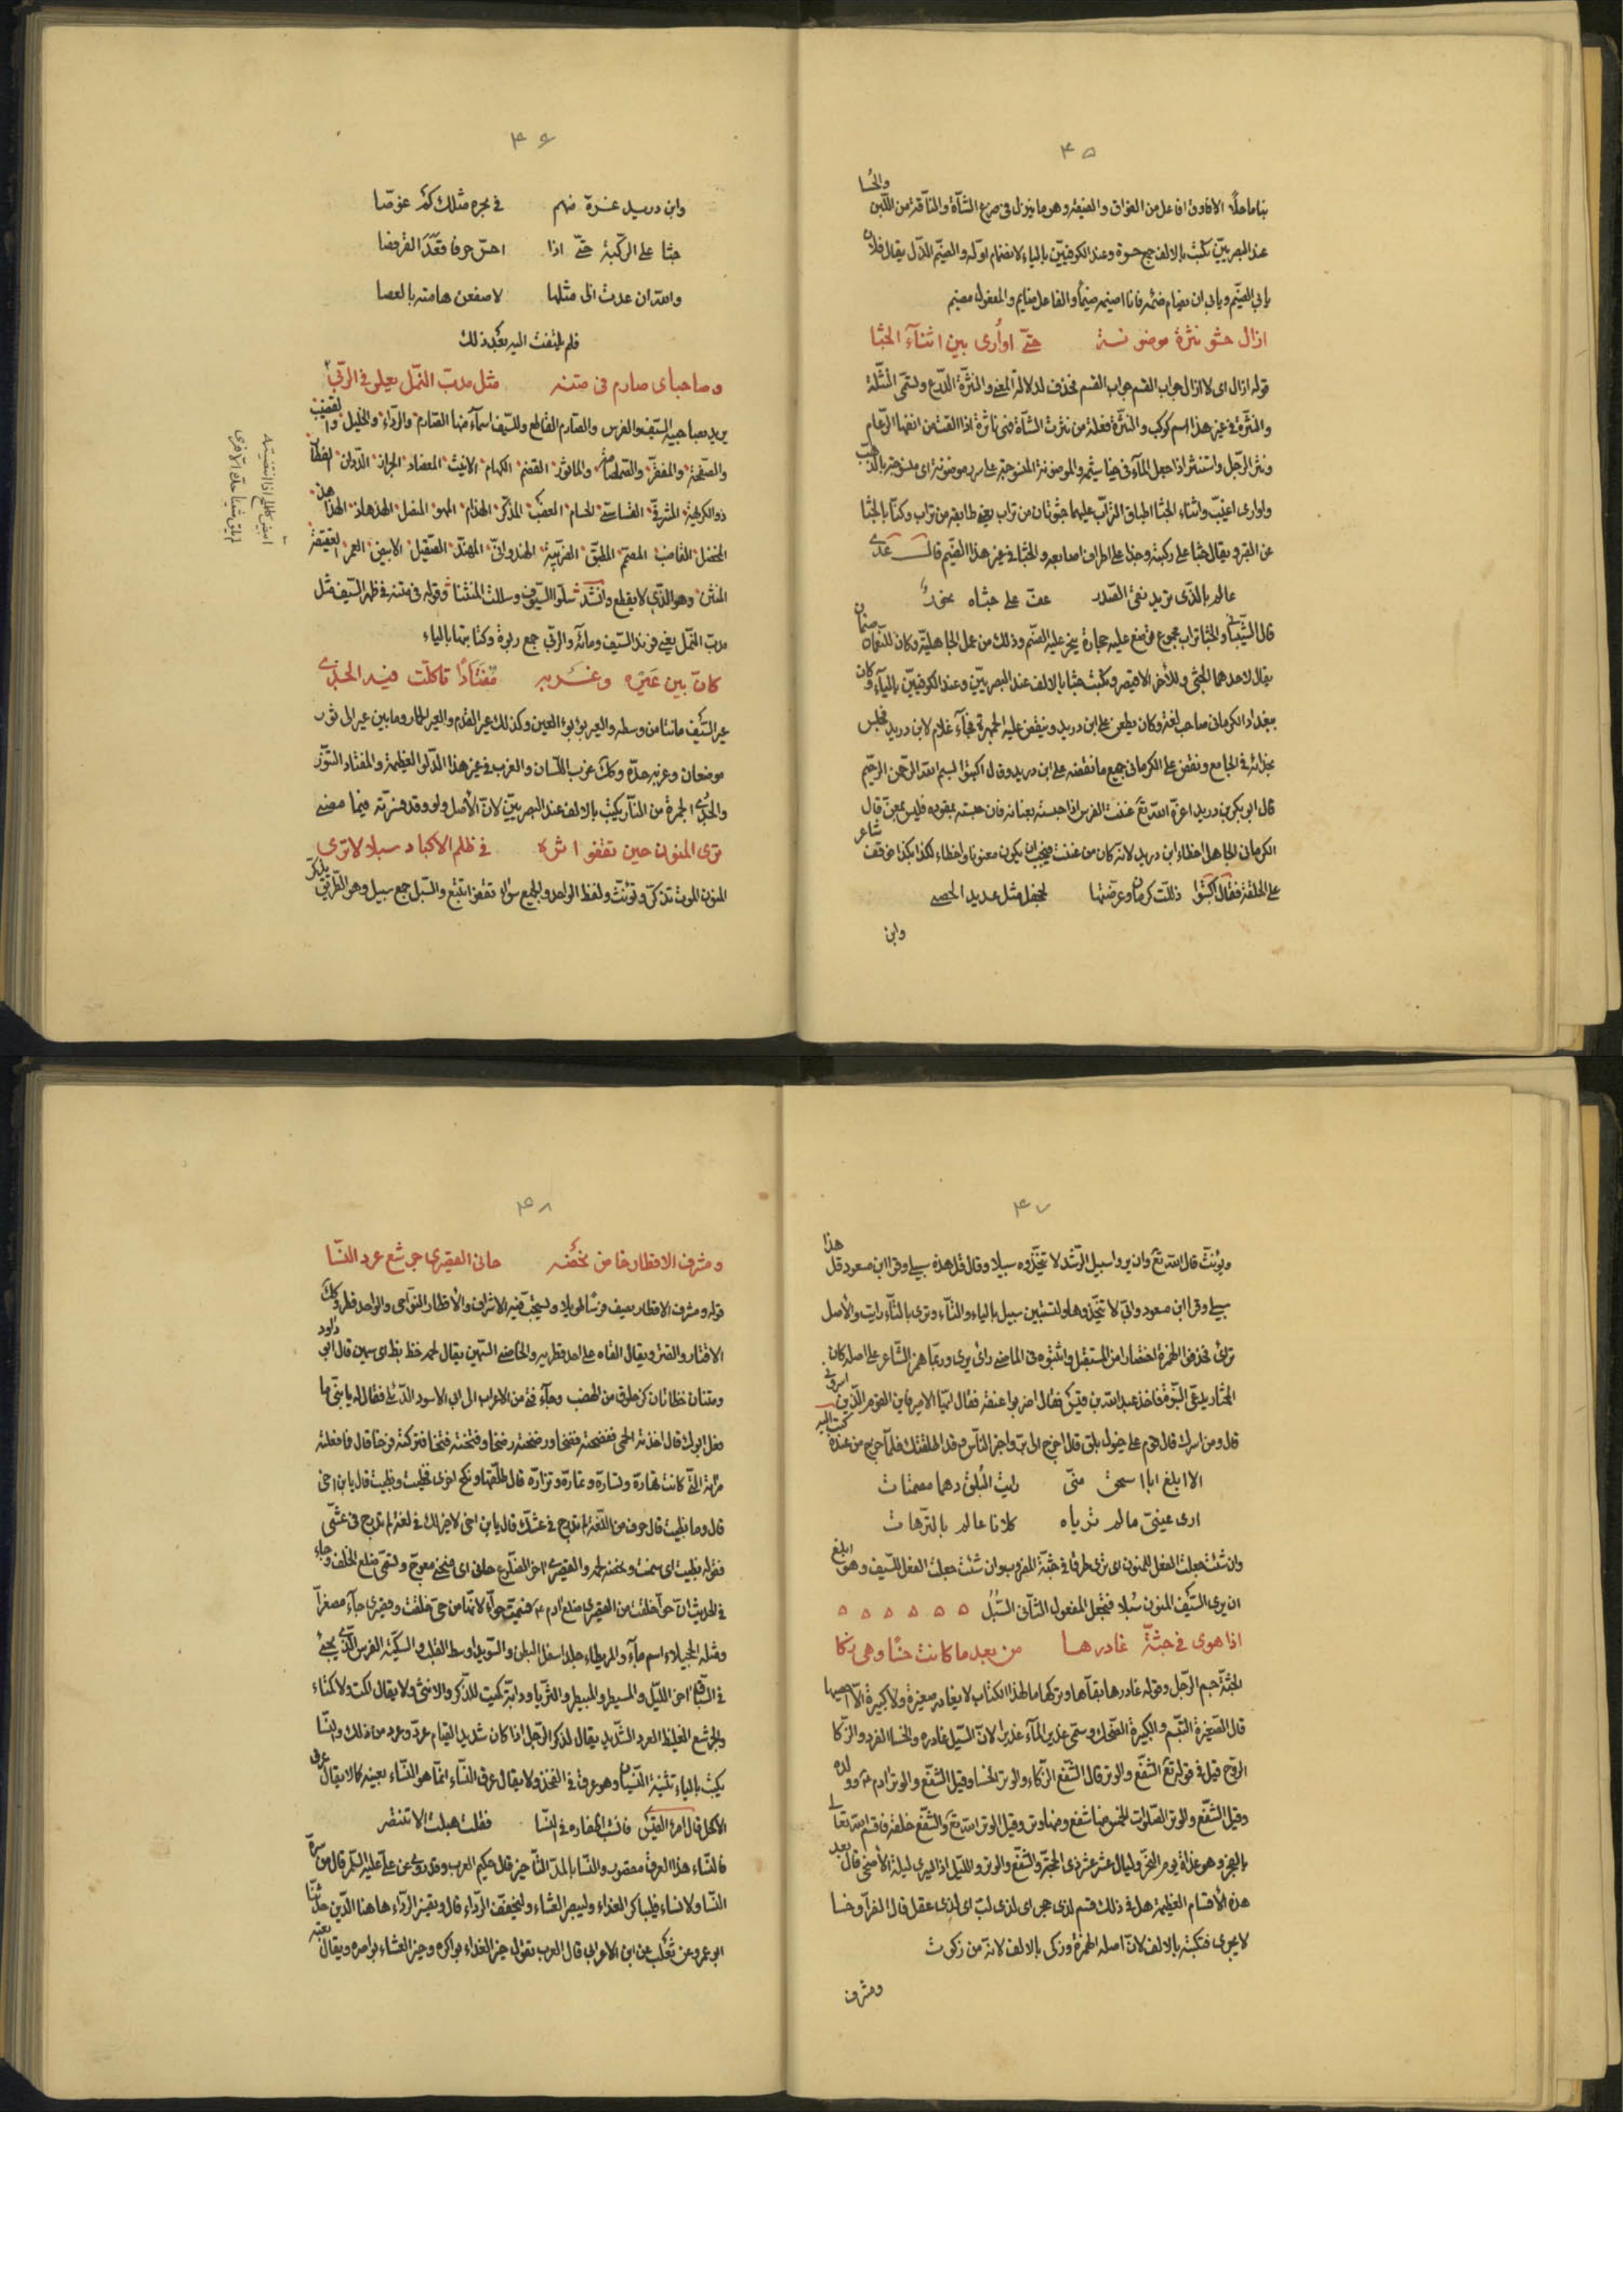 ٤٥
بناها حلّا الافاوق افاعل من الفواق والفيقه وهو ما ينزل في ضرع الشآة والناقة من اللّبن والحُسا
عند البصريّين يكتب بالالف جمع حسوة وعند الكوفيّين بالياء لانضمام اوّله والضّيم الذّل يقال فلان
يابى الضّيم ويابى ان يضام ضمته فانا اضيمه ضيماً والفاعل ضايم والمفعول مضيم
ازال حشو نثرة موضونة حتّى اوارى بين اثنآء الجثا
قوله ازال اى لا ازال جواب القسم فحذف لدلالة المعنى والنثرة الدرع وتسمّى النثلة
والنثرة في غير هذا اسم كوكب والنثرة فعلة من نثرت الشآة فهى ناثرة اذا القت من انفها الرّعام
ونثر الرّجل واستنثر اذا جعل المآء في خياشيمه والموضونة المنسوجة على سرر موضونة اى منسوجة بالذّهب
واوارى اغيّب واثناء الجثا اطباق التراب عليهما جثوتان من تراب يعنى طايفه من تراب وكنّا بالجثا
عن القبر ويقال جثا على ركبته وجذا على اطراف اصابعه والجثا في غير هذا الضّيم قال عدى
عالم بالذّى يريد نقىّ الصّدر عفّ على جثاه نحور
قال الشّيبانى والجثا تراب مجموع توضع عليه حجارة ينحر عليه الصّنم وذلك من عمل الجاهليّة وكان للنّعمان صنمان
يقال لاحدهما الجثى وللأخر الاقيصر وتكتب جثا بالالف عند البصريّين وعند الكوفيّين بالياء وكان
ببغداد الكرمانى صاحب لغة وكان يطعن على ابن دريد وينقض عليه الجمهرة فجآء غلام لابن دريد فجلس
بحذائه في الجامع ونقض على الكرمانى جميع ما نقضه على ابن دريد وقال اكتبوا بسم الله الرّحمن الرّحيم
قال ابو بكر بن دريد اعزه الله تع عننت الفرس اذا حبسته بعنانه فان حبسته بمقوده فليس بمعنّ قال
الكرمانى الجاهل اخطاء ابن دريد لانّه كان من عننت فيجب ان يكون معنونا واخطاء لكذا بكذا فوقف شاعر
على الحلقة فقال اكتبوا ذللت كرمان وعرضتها لجحفل مثل عديد الحصى
وابن
٤٦
وابن دريد غرّة منهم في بحره مثلك كم غوصّا
جثا على الرّكبة حتّى اذا احسّ حرفا قعّد القرفصا
والله ان عدت الى مثلها لاصفعن هامته بالعصا
فلم يلتفت اليه بعد ذلك
وصاحباى صارم في متنه مثل مدبّ النّمل يعلو في الرّبى
يريد بصاحبيه السّيف والفرس والصّارم القاطع وللسّيف اسمآء منها الصّارم والرّداء والخليل والقضيب
والصّفيحة والمفقّر والصّمصامة والماثور القضم الكهام الانيث المعضاد الجراز الدّدان الفطار
ذو الكريهة المشرفىّ القساسىّ الحسام العضب المذكّر الهذام المهو المفصل الهذهاذ الهذّ هذ
المخصل القاضب المصمّم المطبّق الضريبة الهندوانىّ المهنّد الصّقيل الابيض العمر العقيقة
المنثنى وهو الذّى لا يقطع وانشد سلّوا السّيوف وسللت المنثنا وقوله في متنه في ظهر السّيف مثل
مدبّ النّمل يعنى فرند السّيف ومآئه والرّبى جمع ربوة وكتابتها بالياء
كانّ بين عيره وغربه مفتاداً تاكلت فيه الجذى
عير السّيف ما نتا من وسطه والعير بؤبؤ العين وكذلك عير القدم والعير الحمار وما بين عير الى ثور
موضعان وغربه حدّه وكذلك غرب اللّسان والغرب في غير هذا الدّلو العظيمة والمفتاد التّنّور
والجذى الجمرة من النّار يكتب بالالف عند البصريّين لانّ الأصل واو وقد فسّرته فيما مضى
ترى المنون حين تقفوا اثره في ظلم الاكباد سبلا لا ترى
المنون الموت تذكّر وتؤنّث ولفظ الواحد والجمع سوآء تقفوا تتبع والسّبل جمع سبيل وهو الطّريق يذكّر
٤٧
ويؤنّث قال الله تع وان يروا سبيل الرّشد لا يتّخذوه سبيلا وقال قل هذه سبيلى وقرا ابن مسعود قل هذا
سبيلى وقرا ابن مسعود وابىّ لا يتّخذوها ولتستبين سبيل بالياء والتّاء وترى بالتّاء رايت والأصل
ترأى فحذفوا الهمزة اختصارا من المستقبل واثبتوه في الماضى راى يرى وربّما همز الشّاعر على اصله كان
المختار يدعى النبّوة فاخذ عبد الله بن فقال اضربوا عنقه فقال ايّها الامير فاين القوم الّذين اسرونى
قال ومن اسرك قال قوم على خيول بلق قال اخرج الى واخبر النّاس فقد اطلقتك فلمّا خرج من عنده كتب اليه
الا ابلغ ابا اسحق منّى رايت البُلق دهما مصمتات
ارى عينىّ ما لم ترياه كلانا عالم بالتّرّهات
وان شئت جعلت الفعل للمنون اى ترى طرقا في جثّة المضروب وان شئت جعلت الفعل للسّيف وهو ابلغ
ان يرى السّيف المنون سُبلا فتجعل المفعول الثّانى السّبل
اذا هوى في جثّة غادرها من بعد ما كانت خسًا وهى زكا
الجثّة جسم الرّجل وقوله غادرها بقاها وتركها ما لهذا الكتاب لا يغادر صغيرة ولا كبيرة الّا احصيها
قال الصّغيرة التّبسّم والكبيرة الضّحك وسمّى غدير المآء غديرا لانّ السّيل غادره والخسا الفرد والزّكا
الزّوج قيل في قوله تع الشّفع والوتر قال الشّفع الزّكاء والوتر الخسا وقيل الشّفع والوتر ادم وولده
وقيل الشّفع والوتر الصّلوات الخمس منها شفع ومنها وتر وقيل الوتر الله تع والشّفع خلقه فاقسم الله تعالى
بالفجر وهو غداة يوم النّحر وليال عشر عشر ذى الحجّة والشّفع والوتر والليل اذا يسرى ليلة الأضحى قال بعد
هذه الأقسام العظيمة هل في ذلك قسم لذى حجر اى لذى لبّ اى لذى عقل قال الفرّا وخسا
لا يجرى فتكتبه بالالف لانّ اصله الهمزة وزكى بالالف لانّه من زكوت
ومشرف
٤٨
ومشرف الاقطار خاظ نحضه حابى القصيرى جرشع عرد النّسا
قوله ومشرف الاقطار يصف فرسًا طويلا ويستحبّ فيه الاشراف والأقطار النّواحى والواحد قطر وكذلك
الاقتار والقتر ويقال القاه على احد قطريه والخاضى السّمين يقال لحمه خظ بظ اى سمين قال ابو داود
ومتنان خظاتان كزحلوق من الهضب وجآء فتى من الاعراب الى ابى الاسود الدّئلى فقال له يا بنىّ ما
فعل ابوك قال اخذته الحمى ففضخته فضخا ورضخته رضخا وفتخته فتخا فتركته فرخا قال فما فعلته
مراته الّتى كانت تهارّه وتشارّه وتمارّه وتزارّه قال طلّقها ونكح اخرى فخظيت وبظيت قال يا بن اخى
قال وما بظيت قال حرف من اللّغة لم يدرج في عشّك قال يا بن اخى لا خير لك في لغة لم تدرج في عشّى
فقوله بظيت اى سمنت ونحضه لحمه والقصيرى اخر الضّلوع حابى اى منحنى معوج وتسمّى ضلع الخلف وجاء
في الحديث انّ حوآ خلقت من القصيرى ضلع ادم فسمّيت حوّآء لانّها من حىّ خلقت وقصيرى جآء مصغراً
ومثله الجميلاء اسم مآء والمريطاء جلد اسفل البطن والسّويدا وسط القلب والسّكيت الفرس الّذى يجىء
في السّباق اخر اللّيل والمسيطر والمبيطر والثّريا ودابّة كميت للذّكر والانثى ولا يقال اكمت ولا كمتاء
والجرشع الغليظ العرد الشّديد يقال لذكر الرّجل اذا كان شديد القيام عردّ وعرد من ذلك والنّسا
يكتب بالياء تثنية النّسيان وهو عرق في الفخذ ولا يقال عرق النّساء انّما هو النّساء بعينه كما لا يقال عرق
الاكحل قال امرؤ القيس فانشب اظفاره في النّسا فقلت هبلت الا تنتصر
فالنّساء هذا العرق مقصور والنّسا بالمدّ التّاخير قال حكيم العرب وقد روى عن علىّ عليه السّلم قال من سرّه
النّسا ولا نساء فليباكر الغداء وليبصر العشاء وليخفف الرّداء قال وتفسير الرّداء هاهنا الدّين حدّثنا
ابو عمر وعن ثعلب عن ابن الاعرابى قال العرب تقول خير الغداء بواكره وخير العشاء بواصره ويقال